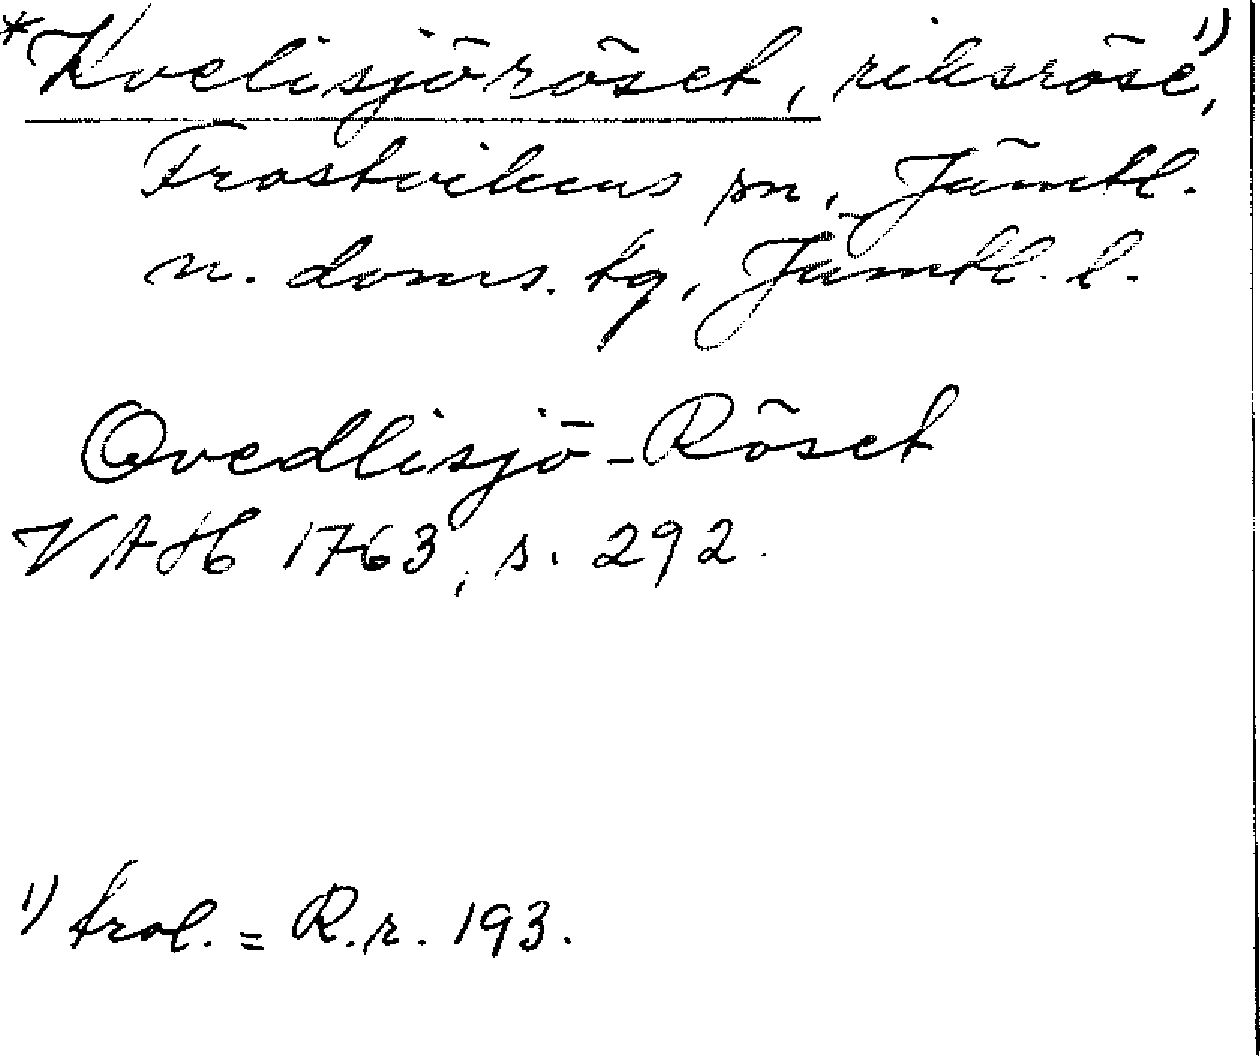 *Kvelisjöröset, riksröse¹⁾,
Frostvikens sn, Jämtl.
n. doms. tg, Jämtl. l.
Qvedlisjö-Röset
VAH 1763, s. 292.
¹⁾ trol. = R.r. 193.